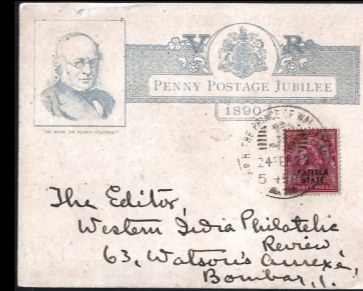 V R
PENNY POSTAGE JUBILEE
1890
H.R.H. THE PRINCE OF WAL
24 FEB
PATIALA
STATE
The Editor,
Western India Philatelic
Review,
63, Watson's Annexe,
Bombay, 1.